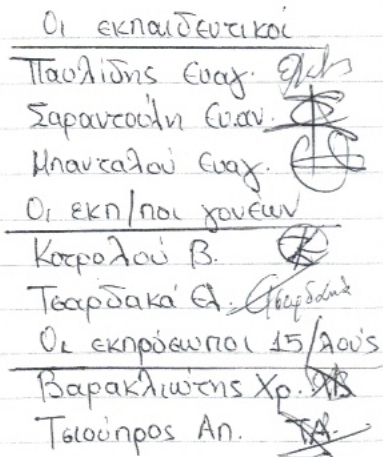 Οι εκπαιδευτικοί
Παυλίδης Ευαγ.
Σαραντούλη Ευ.αν.
Μπανταλού Ευαγ.
Οι εκπ/ποι γονέων
Κοτρολού Β.
Τσαρδακά Ελ. Τσαρδακά
Οι εκπρόσωποι 15/λούς
Βαρακλιώτης Χρ. ΧΒ
Τσιούπρος Απ. Τ.Α.